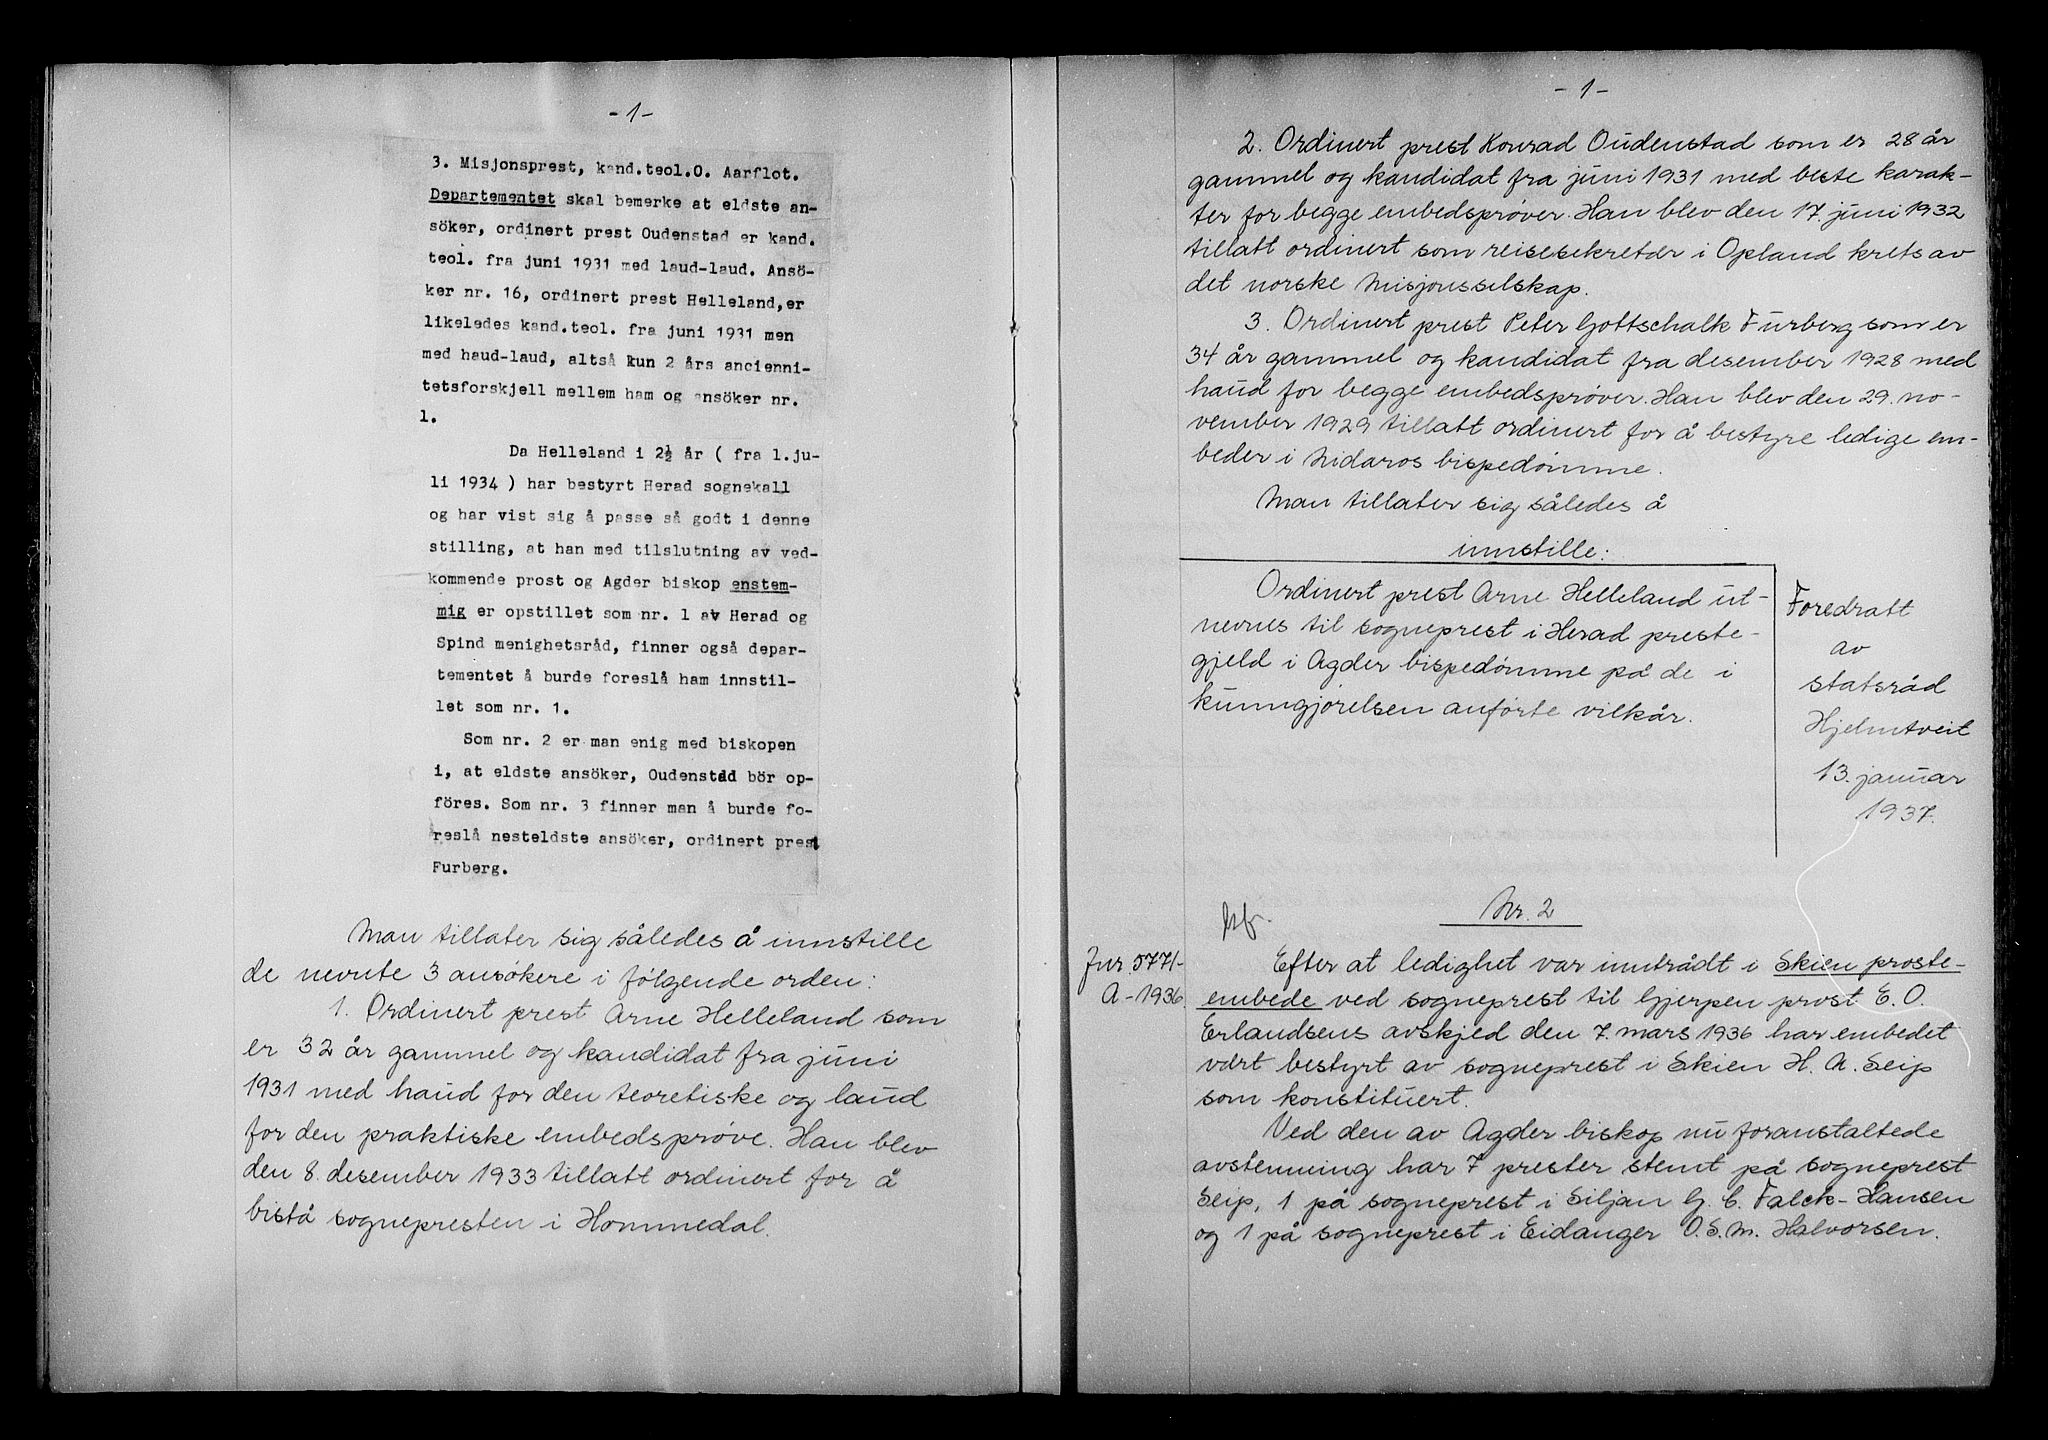 - 1 -
3. Misjonsprest, kand.teol.O. Aarflot.
Departementet skal bemerke at eldste an-
söker, ordinert prest Oudenstad er kand.
teol. fra juni 1931 med laud-laud. Ansö-
ker nr. 16, ordinert prest Helleland,er
likeledes kand.teol. fra juni 1931 men
med haud-laud, altså kun 2 års ancienni-
tetsforskjell mellem ham og ansöker nr.
1.
Da Helleland i 2½ år ( fra 1.ju-
li 1934 ) har bestyrt Herad sognekall
og har vist sig å passe så godt i denne
stilling, at han med tilslutning av ved-
kommende prost og Agder biskop enstem-
mig er opstillet som nr. 1 av Herad og
Spind menighetsråd, finner også depar-
tementet å burde foreslå ham innstil-
let som nr. 1.
Som nr. 2 er man enig med biskopen
i, at eldste ansöker, Oudenstad bör op-
föres. Som nr. 3 finner man å burde fo-
reslå nesteldste ansöker, ordinert prest
Furberg.
Man tillater sig således å innstille
de nevnte 3 ansökere i følgende orden:
1. Ordinert prest Arne Helleland som
er 32 år gammel og kandidat fra juni
1931 med haud for den teoretiske og laud
for den praktiske embedsprøve. Han blev
den 8. desember 1933 tillatt ordinert for å
bistå sognepresten i Hommedal.
- 1 -
2. Ordinert prest Konrad Oudenstad som er 28 år
gammel og kandidat fra juni 1931 med beste karak-
ter for begge embedsprøver. Han blev den 17. juni 1932
tillatt ordinert som reisesekretær i Opland krets av
det norske Misjonsselskap.
3. Ordinert prest Peter Gottschalk Furberg som er
34 år gammel og kandidat fra desember 1928 med
haud for begge embedsprøver. Han blev den 29. no-
vember 1929 tillatt ordinert for å bestyre ledige em-
beder i Nidaros bispedømme.
Man tillater sig således å
innstille:
Ordinert prest Arne Helleland ut-
nevnes til sogneprest i Herad preste-
gjeld i Agder bispedømme på de i
kunngjørelsen anførte vilkår.
Foredratt
av
statsråd
Hjelmtveit
13. januar
1937.
Nr. 2
Jnr. 5771-
A - 1936
Efter at ledighet var inntrådt i Skien proste-
embede ved sogneprest til Gjerpen prost E. O.
Erlandsens avskjed den 7. mars 1936 har embedet
vært bestyrt av sogneprest i Skien H. A. Seip
som konstituert.
Ved den av Agder biskop nu foranstaltede
avstemning har 7 prester stemt på sogneprest
Seip, 1 på sogneprest i Siljan G. C. Falck-Hansen
og 1 på sogneprest i Eidanger O. S. M. Halvorsen.